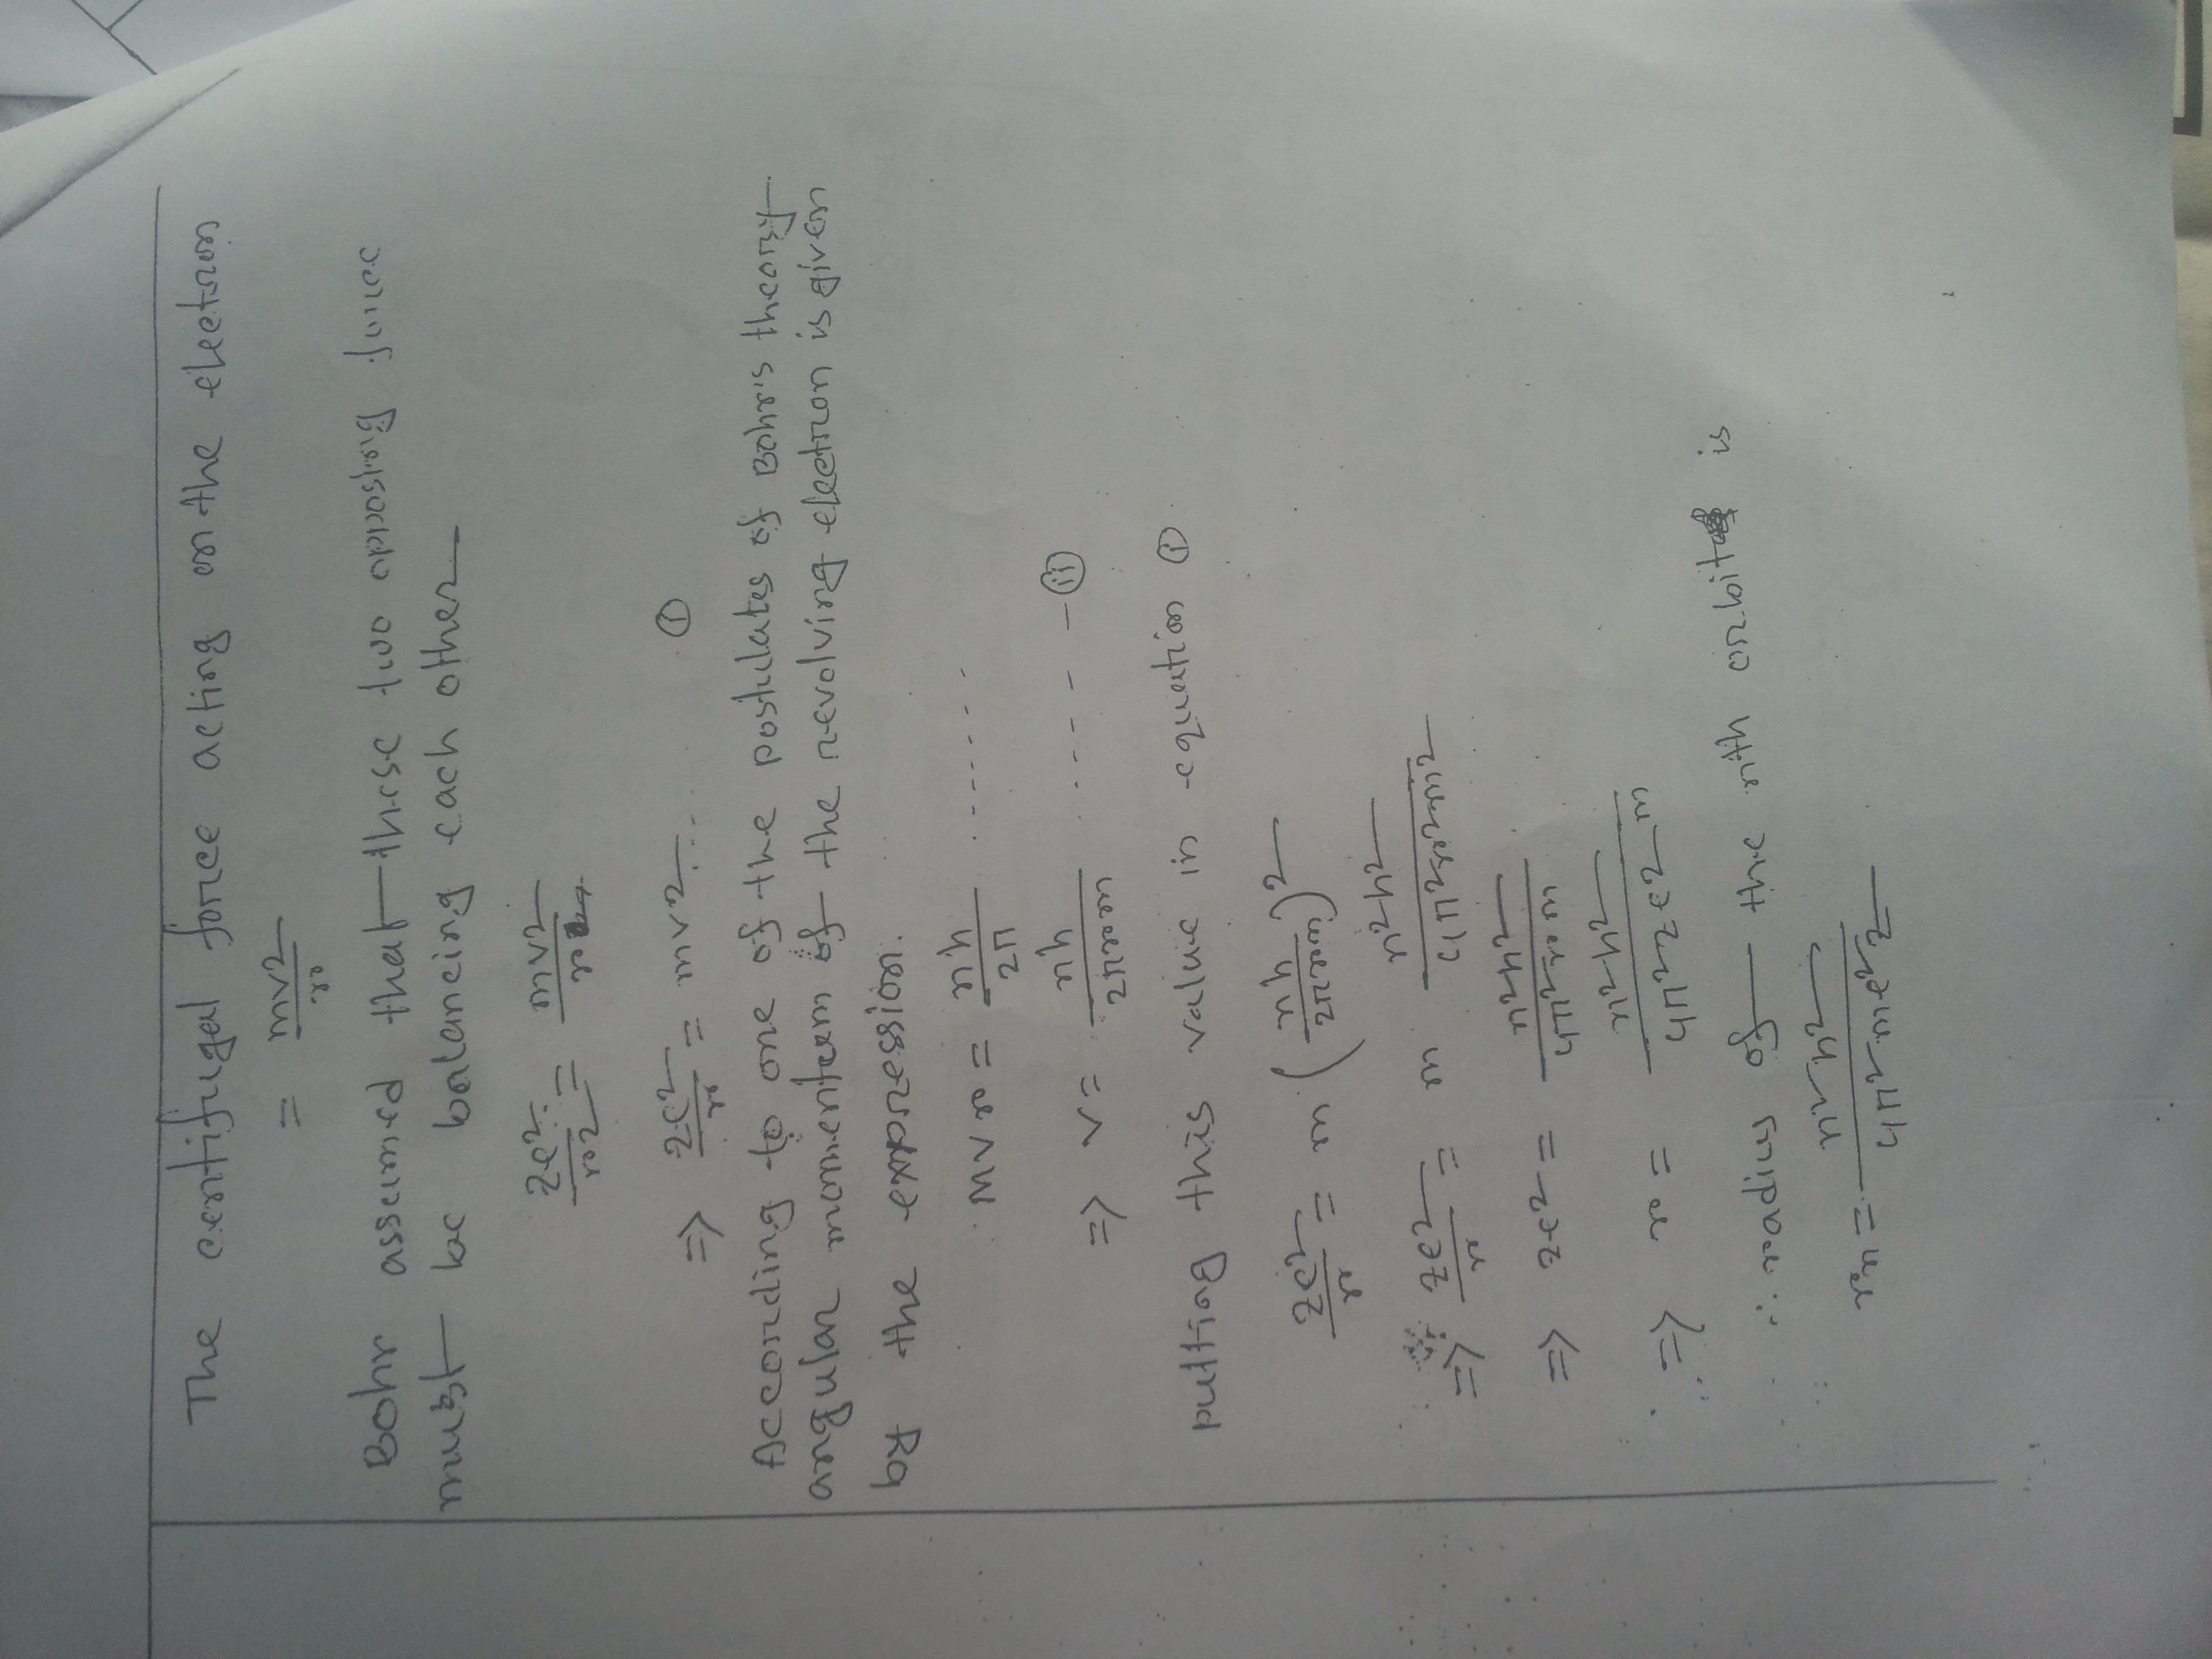 The centifugal force acting on the electron
= mv2/r
Bohr assumed that these two opposing force
must be balancing each other
ze²/r2 = mv2/r
=> ze²/r = mv2 .... (i)
According to one of the postulates of Bohr's theory
angular momentum of the revolving electron is given
by the expression.
mvr = nh/2π .......
=> v = nh/2πrm ...... (ii)
putting this value in equation (i)
ze²/r = m (nh/2πrm)²
=> ze²/r = m n²h²/4π²r²m²
=> ze² = n²h²/4π²rm
=> r = n²h²/4π²ze2m
∴ radius of the nth orbit is
rn = n²h²/4π²me²z